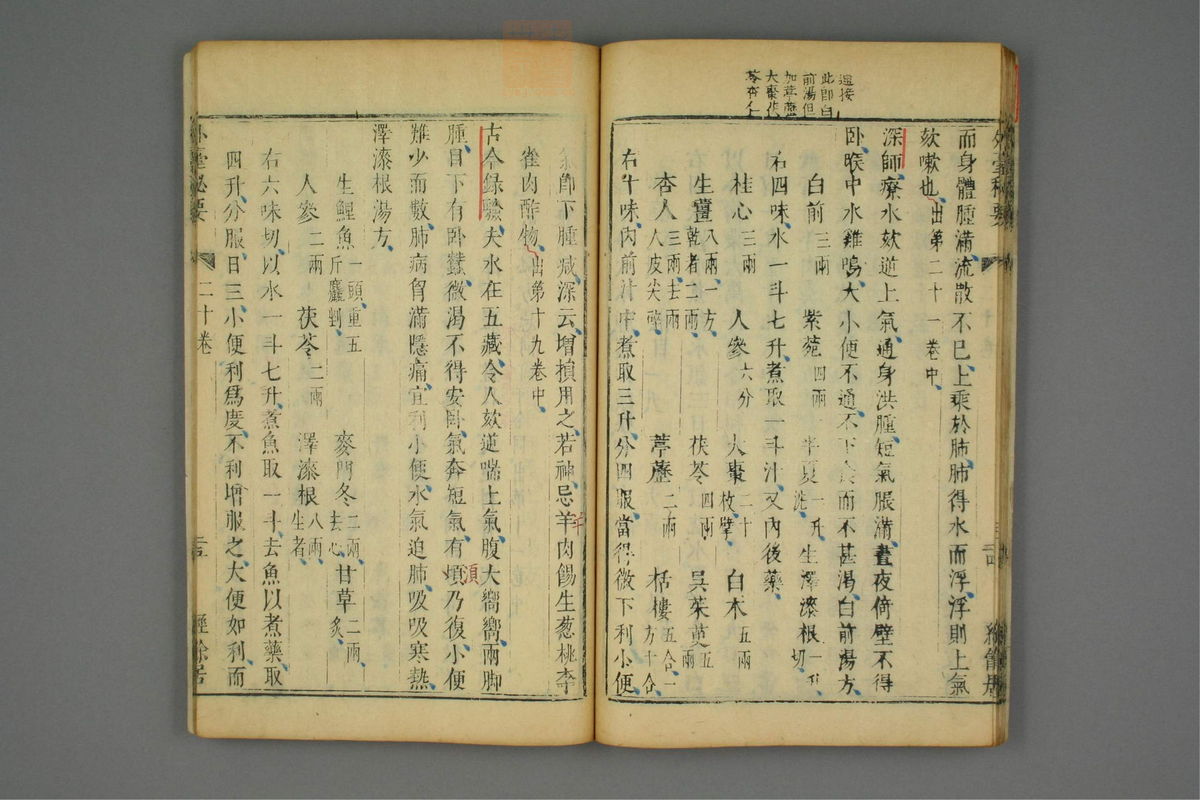 還接
此即白
前湯但
加葶藶
大棗茯
苓杏仁
而身體腫滿流散不已上乘於肺肺得水而浮浮則上氣
欬嗽也出第二十一卷中
深師療水欬逆上氣通身洪腫短氣脹滿晝夜倚壁不得
臥喉中水雞鳴大小便不通不下食而不甚渴白前湯方
白前三兩 紫菀四兩 半夏一升洗 生澤漆根一升切
右四味水一斗七升煮取一斗汁又內後藥
桂心三兩 人參六分 大棗二十枚擘 白朮五兩
生薑八兩一方乾者二兩 茯苓四兩 吳茱萸五兩
杏人三兩去人皮尖碎 葶藶二兩 栝樓五合一方十合
右十味內前汁中煮取三升分四服當得微下利小便
氣即下腫減深云增損用之若神忌羊肉餳生葱桃李
雀肉酢物出第十九卷中
古今錄驗夫水在五藏令人欬逆喘上氣腹大嚮嚮兩腳
腫目下有臥蠶微渴不得安臥氣奔短氣有頃乃復小便
難少而數肺病胷滿隱痛宜利小便水氣迫肺吸吸寒熱
澤漆根湯方
生鯉魚一頭重五斤麤剉 麥門冬二兩去心 甘草二兩炙
人參二兩 茯苓二兩 澤漆根八兩生者
右六味切以水一斗七升煮魚取一斗去魚以煮藥取
四升分服日三小便利爲度不利增服之大便如利而
外臺秘要
二十卷
經餘居